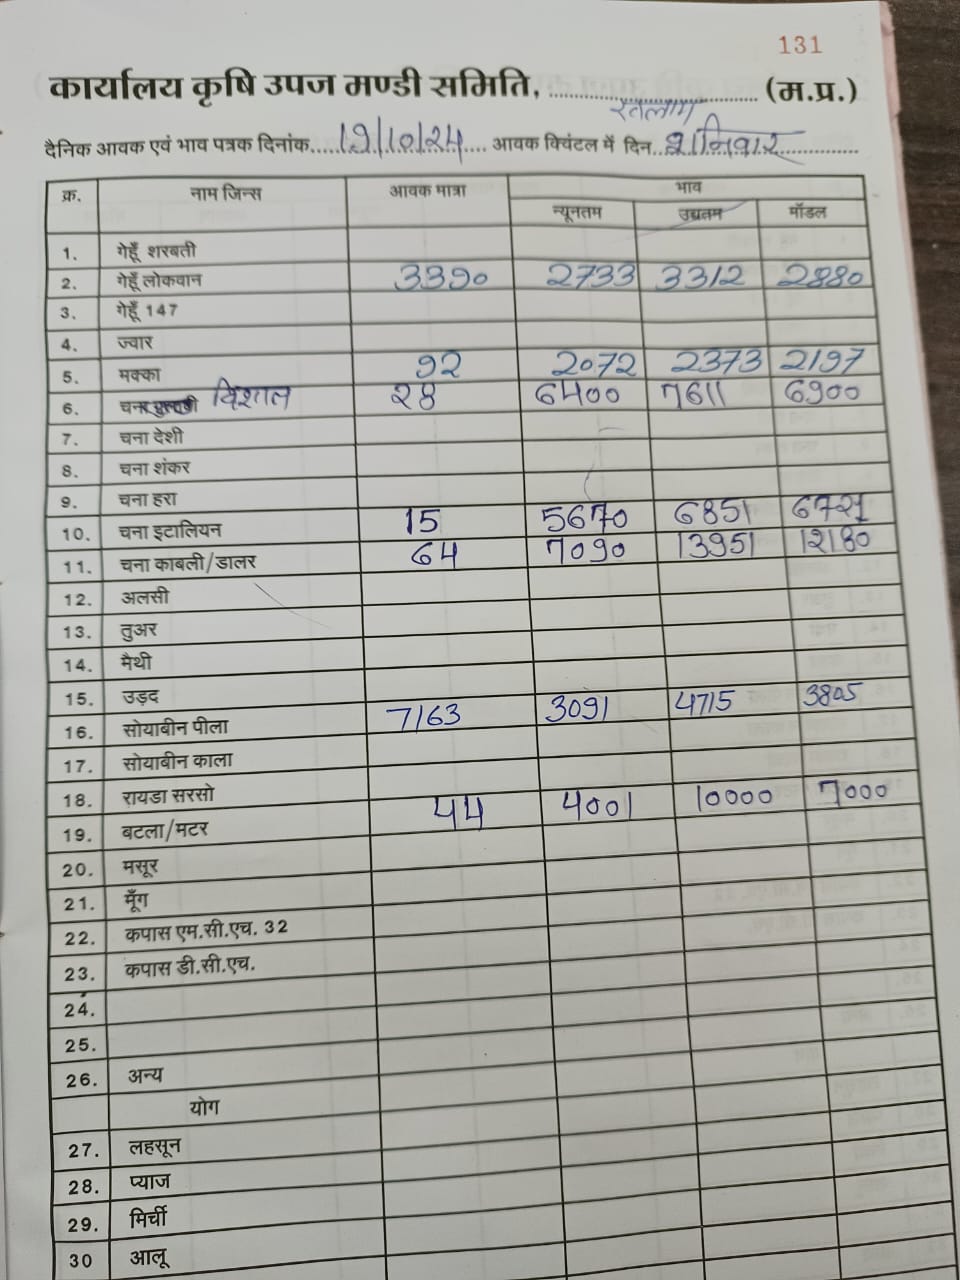 131
कार्यालय कृषि उपज मण्डी समिति, रतलाम (म.प्र.)
दैनिक आवक एवं भाव पत्रक दिनांक 19/10/24 आवक क्विंटल में दिन शनिवार
क्र. नाम जिन्स आवक मात्रा भाव
न्यूनतम उच्चतम मॉडल
1. गेहूँ शरबती
2. गेहूँ लोकवान 3390 2733 3312 2880
3. गेहूँ 147
4. ज्वार
5. मक्का 92 2072 2373 2197
6. चना विशाल 28 6400 7611 6900
7. चना देशी
8. चना शंकर
9. चना हरा
10. चना इटालियन 15 5670 6851
11. चना काबली/डालर 64 7090 13951 12180
12. अलसी
13. तुअर
14. मैथी
15. उड़द
16. सोयाबीन पीला 7163 3091 4715 3805
17. सोयाबीन काला
18. रायडा सरसो
19. बटला/मटर 44 4001 10000 7000
20. मसूर
21. मूँग
22. कपास एम.सी.एच. 32
23. कपास डी.सी.एच.
24.
25.
26. अन्य
योग
27. लहसून
28. प्याज
29. मिर्ची
30 आलू